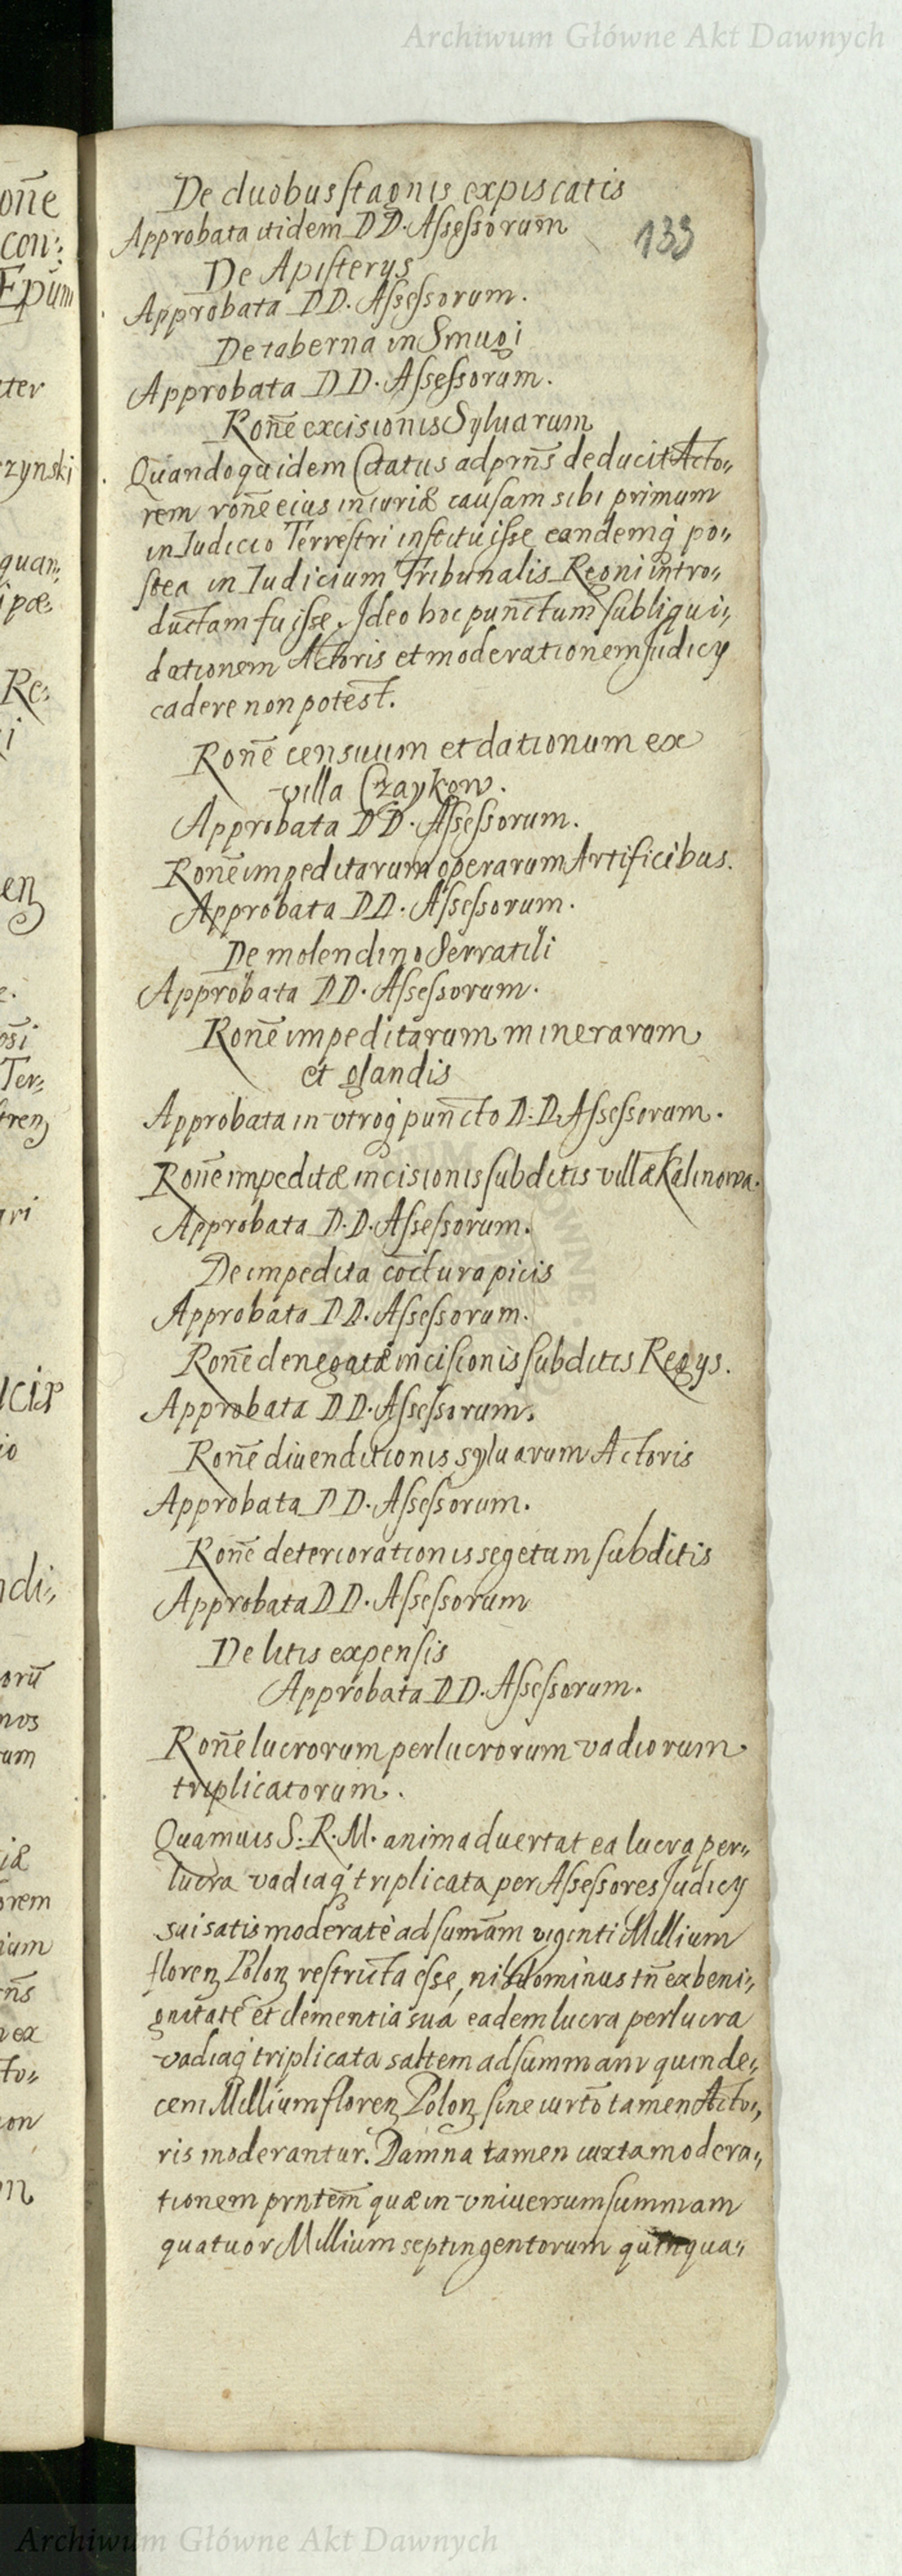 Archiwum Główne Akt Dawnych
De duobus stagnis expiscatis
133
Approbata itidem DD. Assessorum
De Apisterys
Approbata DD. Assessorum.
De taberna in Smugi
Approbata DD. Assessorum.
Rōne excisionis Syluarum
Quandoquidem Citatus ad prn̄s deducit Acto„
rem rōne eius iniuriæ causam sibi primum
in Iudicio Terrestri instituisse eandemq́ po„
stea in Iudicium Tribunalis Regni intro„
ductam fuisse. Ideo hoc punctum sub liqui„
dationem Actoris et moderationem Iudicy
cadere non potest.
Rōne censuum et dationum ex
villa Czaykow.
Approbata DD. Assessorum.
Rōne impeditarum operarum Artificibus.
Approbata DD. Assessorum.
De molendino Serratili
Approbata DD. Assessorum.
Rōne impeditarum minerarum
et glandis
Approbata in vtroq́ puncto D.D. Assessorum.
Rōne impeditæ incisionis subditis villæ Kalinowa.
Approbata D.D. Assessorum.
De impedita coctura picis
Approbata DD. Assessorum.
Rōne denegatæ incisionis subditis Regys.
Approbata DD. Assessorum.
Rōne diuenditionis syluarum Actoris
Approbata DD. Assessorum.
Rōne deteriorationis segetum subditis
Approbata DD. Assessorum
De litis expensis
Approbata DD. Assessorum.
Rōne lucrorum perlucrorum vadiorum
triplicatorum.
Quamuis S. R. M. animaduertat ea lucra per„
lucra vadiaq́ triplicata per Assessores Iudicy
sui satis moderatè ad sumām viginti Millium
floren Polon restricta esse, nihilominus tn̄ ex beni„
gnitate et clementia sua eadem lucra perlucra
vadiaq́ triplicata saltem ad summam quinde„
cem Millium floren Polon sine tamen Acto„
ris moderantur. Damna tamen iuxta modera„
tionem prntem̄ quæ in vniuersum summam
quatuor Millium septingentorum quinqua„
Archiwum Główne Akt Dawnych